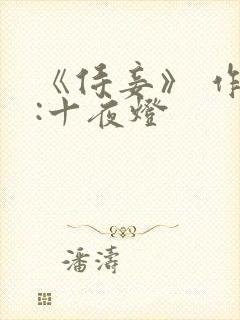 《侍妾》 作
:十夜燈
潘濤